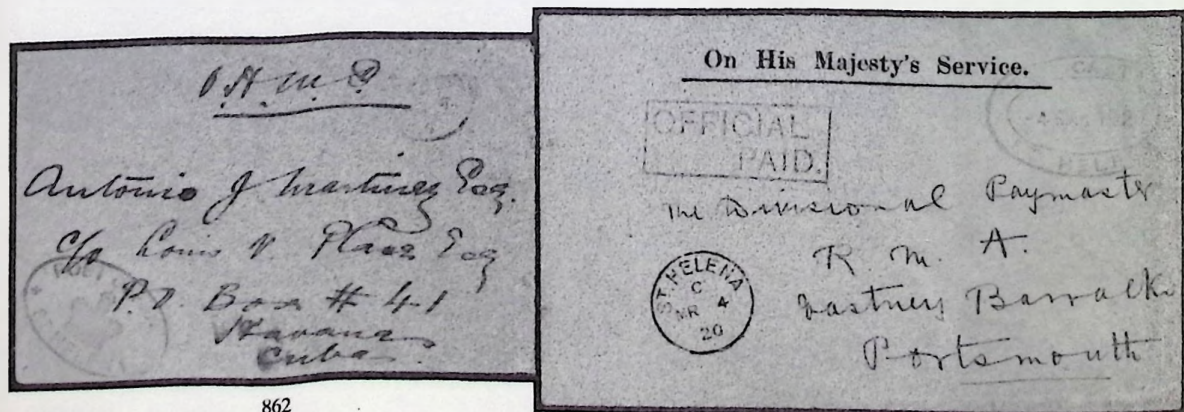 O.H.M.S
Antonio J Martinez Esq.
c/o Louis V. Placé Esq
P.O. Box # 41
Havana
Cuba
862
On His Majesty's Service.
OFFICIAL
PAID.
The Divisional Paymaster
R. M. A.
Eastney Barracks
Portsmouth
ST. HELENA
C
MR 4
20